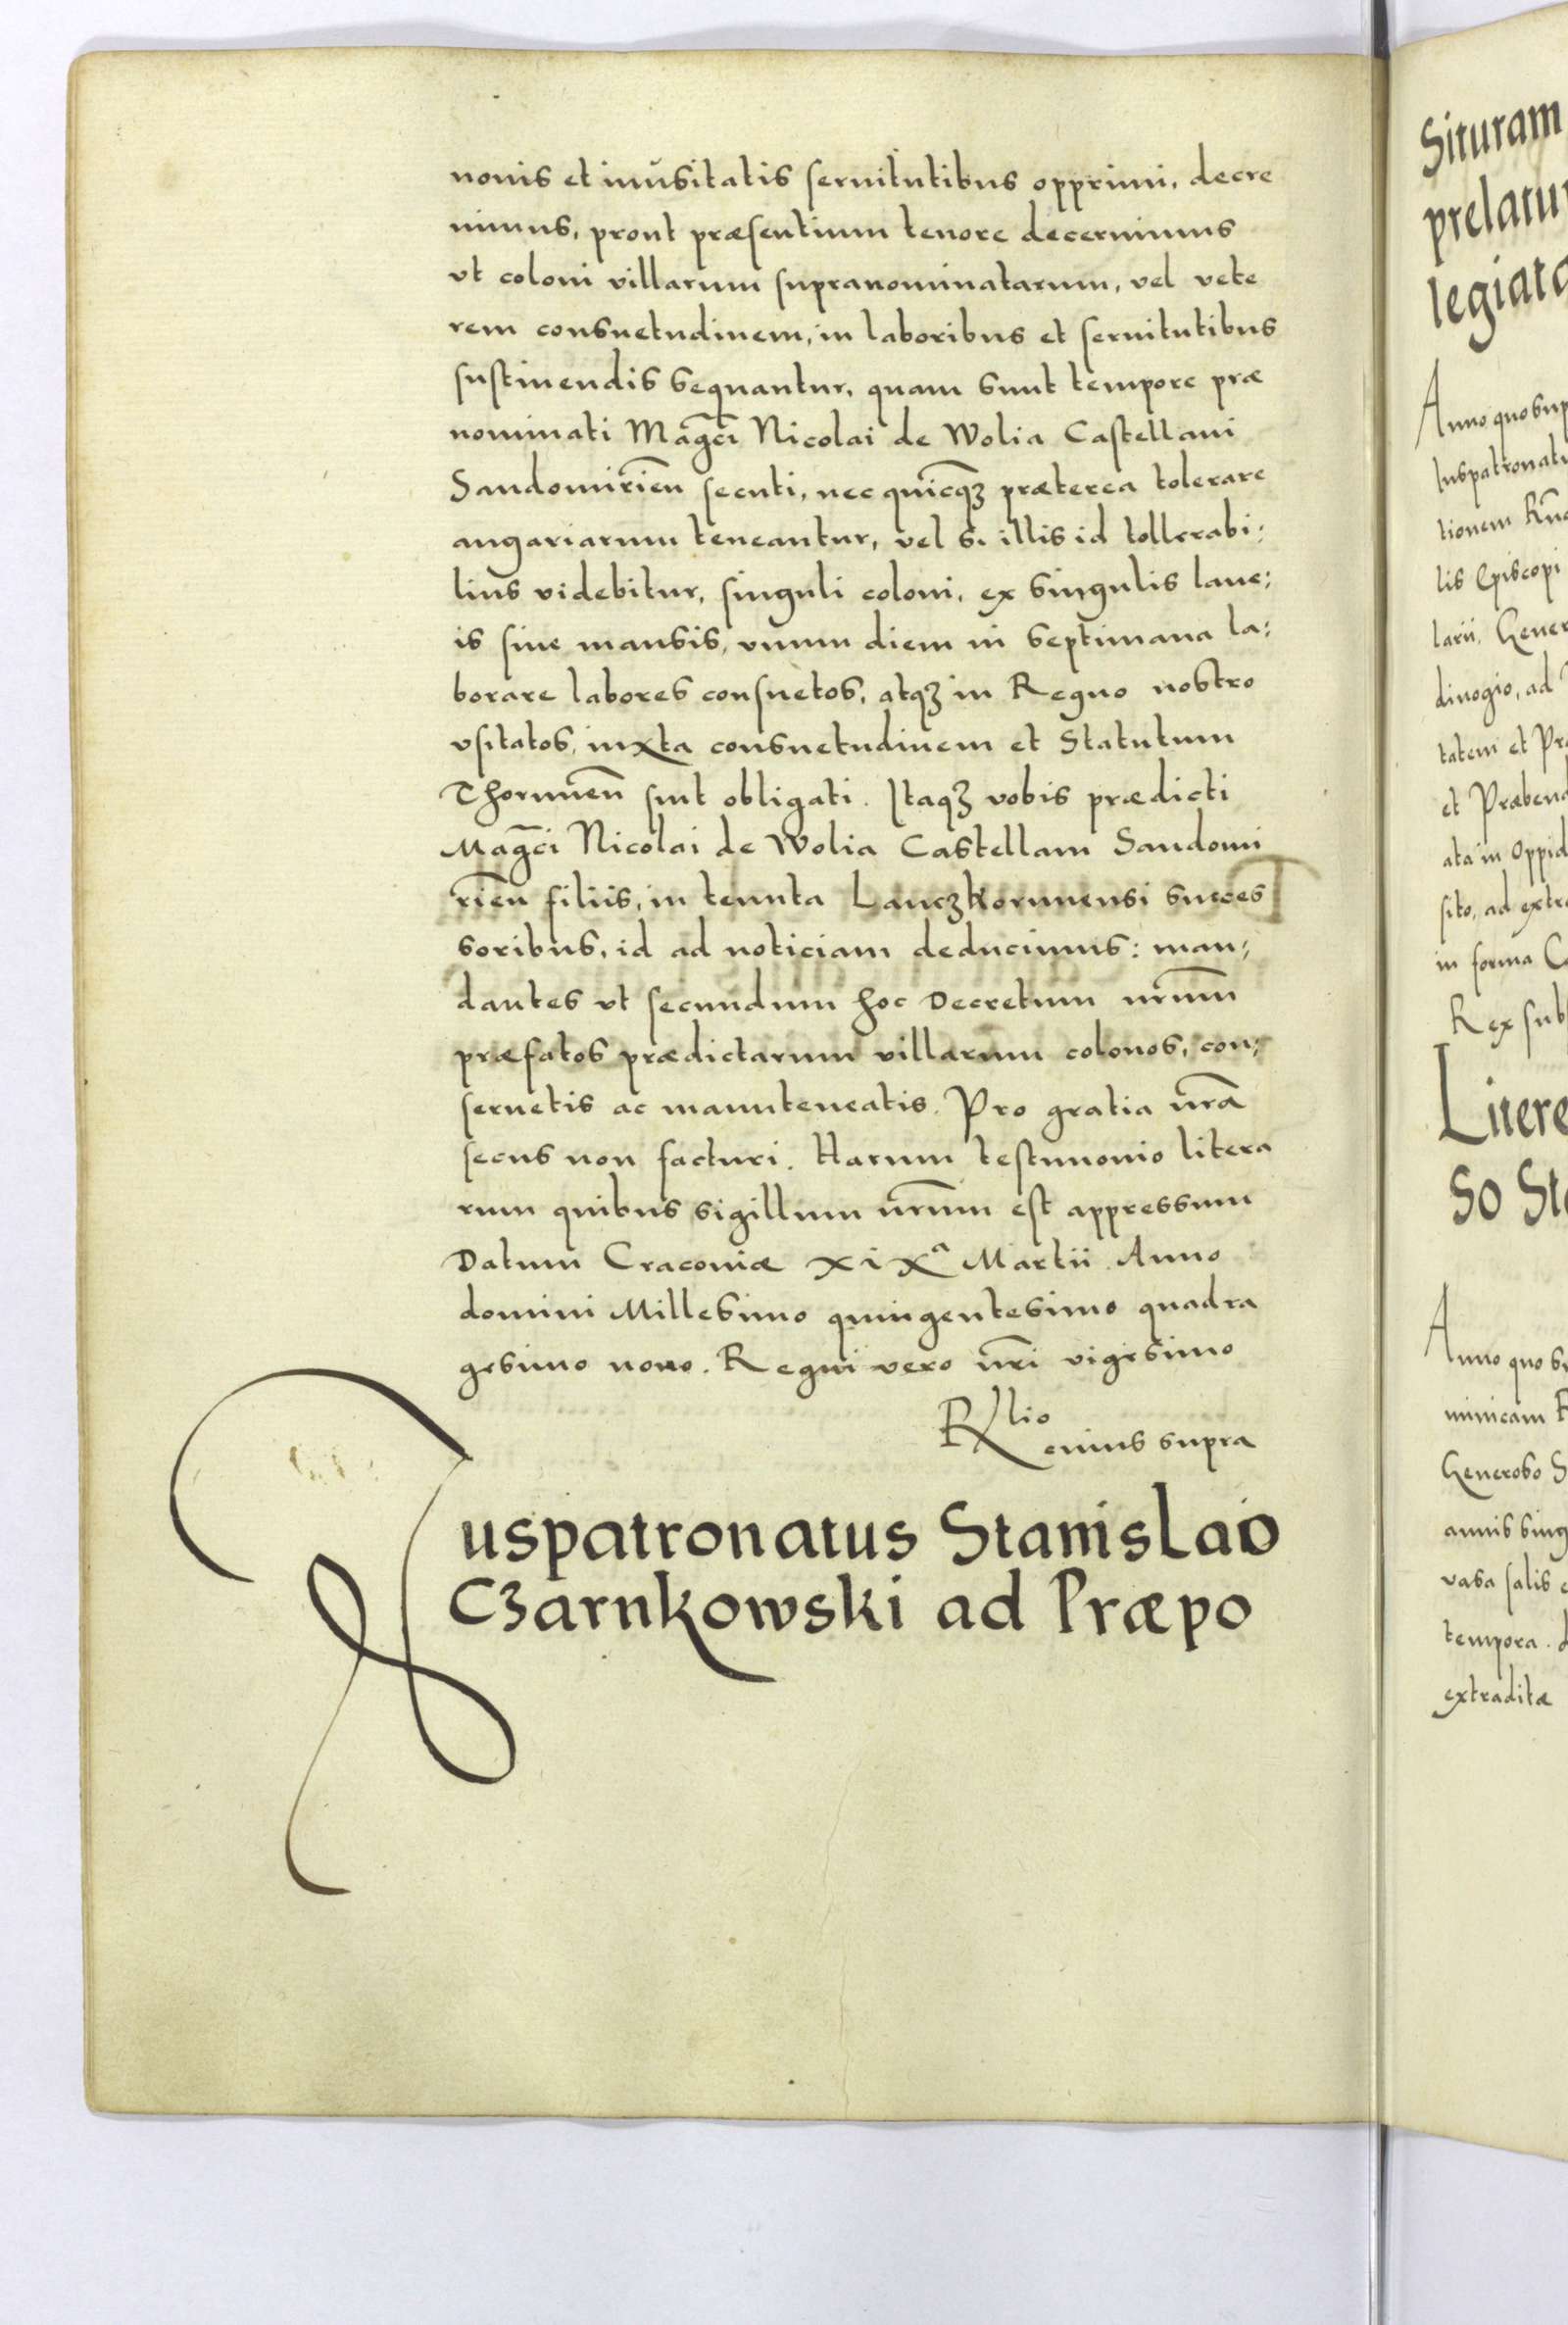 nouis et inusitatis seruitutibus opprimi, decre
uimus, prout præsentium tenore decernimus
vt coloni villarum supranominatarum, vel vete
rem consuetudinem, in laboribus et seruitutibus
sustinendis sequantur, quam sunt tempore præ
nominati Magc̄i Nicolai de Wolia Castellani
Sandomirien̄ secuti, nec quicq̄ꝫ præterea tolerare
angariarum teneantur, vel si illis id tollerabi:
lius videbitur, singuli coloni, ex singulis lane:
is siue mansis, vnum diem in septimana la:
borare labores consuetos, atqꝫ in Regno nostro
vsitatos, iuxta consuetudinem et Statutum
Thorunen̄ sint obligati. Itaqꝫ vobis prædicti
Magc̄i Nicolai de Wolia Castellani Sandomi
rien̄ filiis, in tenuta Lanczkorunensi succes
soribus, id ad noticiam deducimus: man:
dantes vt secundum hoc Decretum nr̄um
præfatos prædictarum villarum colonos, con:
seruetis ac manuteneatis. Pro gratia nr̄a
secus non facturi. Harum testimonio litera
rum quibus sigillum nr̄um est appressum
Datum Cracouiæ XiXa Martii Anno
domini Millesimo quingentesimo quadra
gesimo nono. Regni vero nr̄i vigesimo
Rlio
cuius supra
Juspatronatus Stanislao
Cꝫarnkowski ad Præpo
Situram
prelatu
legiata
Anno quo sup
Iuspatronatu
tionem Rn̄
lis Episcopi
larii, Gener
diuogio, ad
tatem et Pr
et Præbend
ata in Oppid
sito, ad extr
in forma C
Rex sub
Litere
so St
Anno quo s
minicam R
Generoso S
annis sing
vasa salis
tempora. d
extraditæ